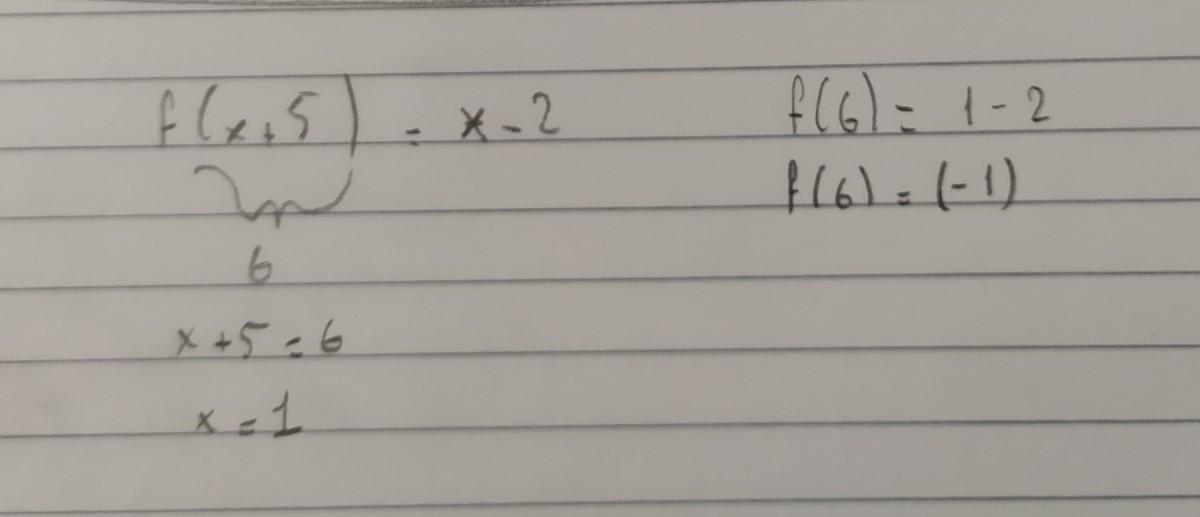 f(x+5) = x-2
6
x+5=6
x=1
f(6)= 1-2
f(6)=(-1)